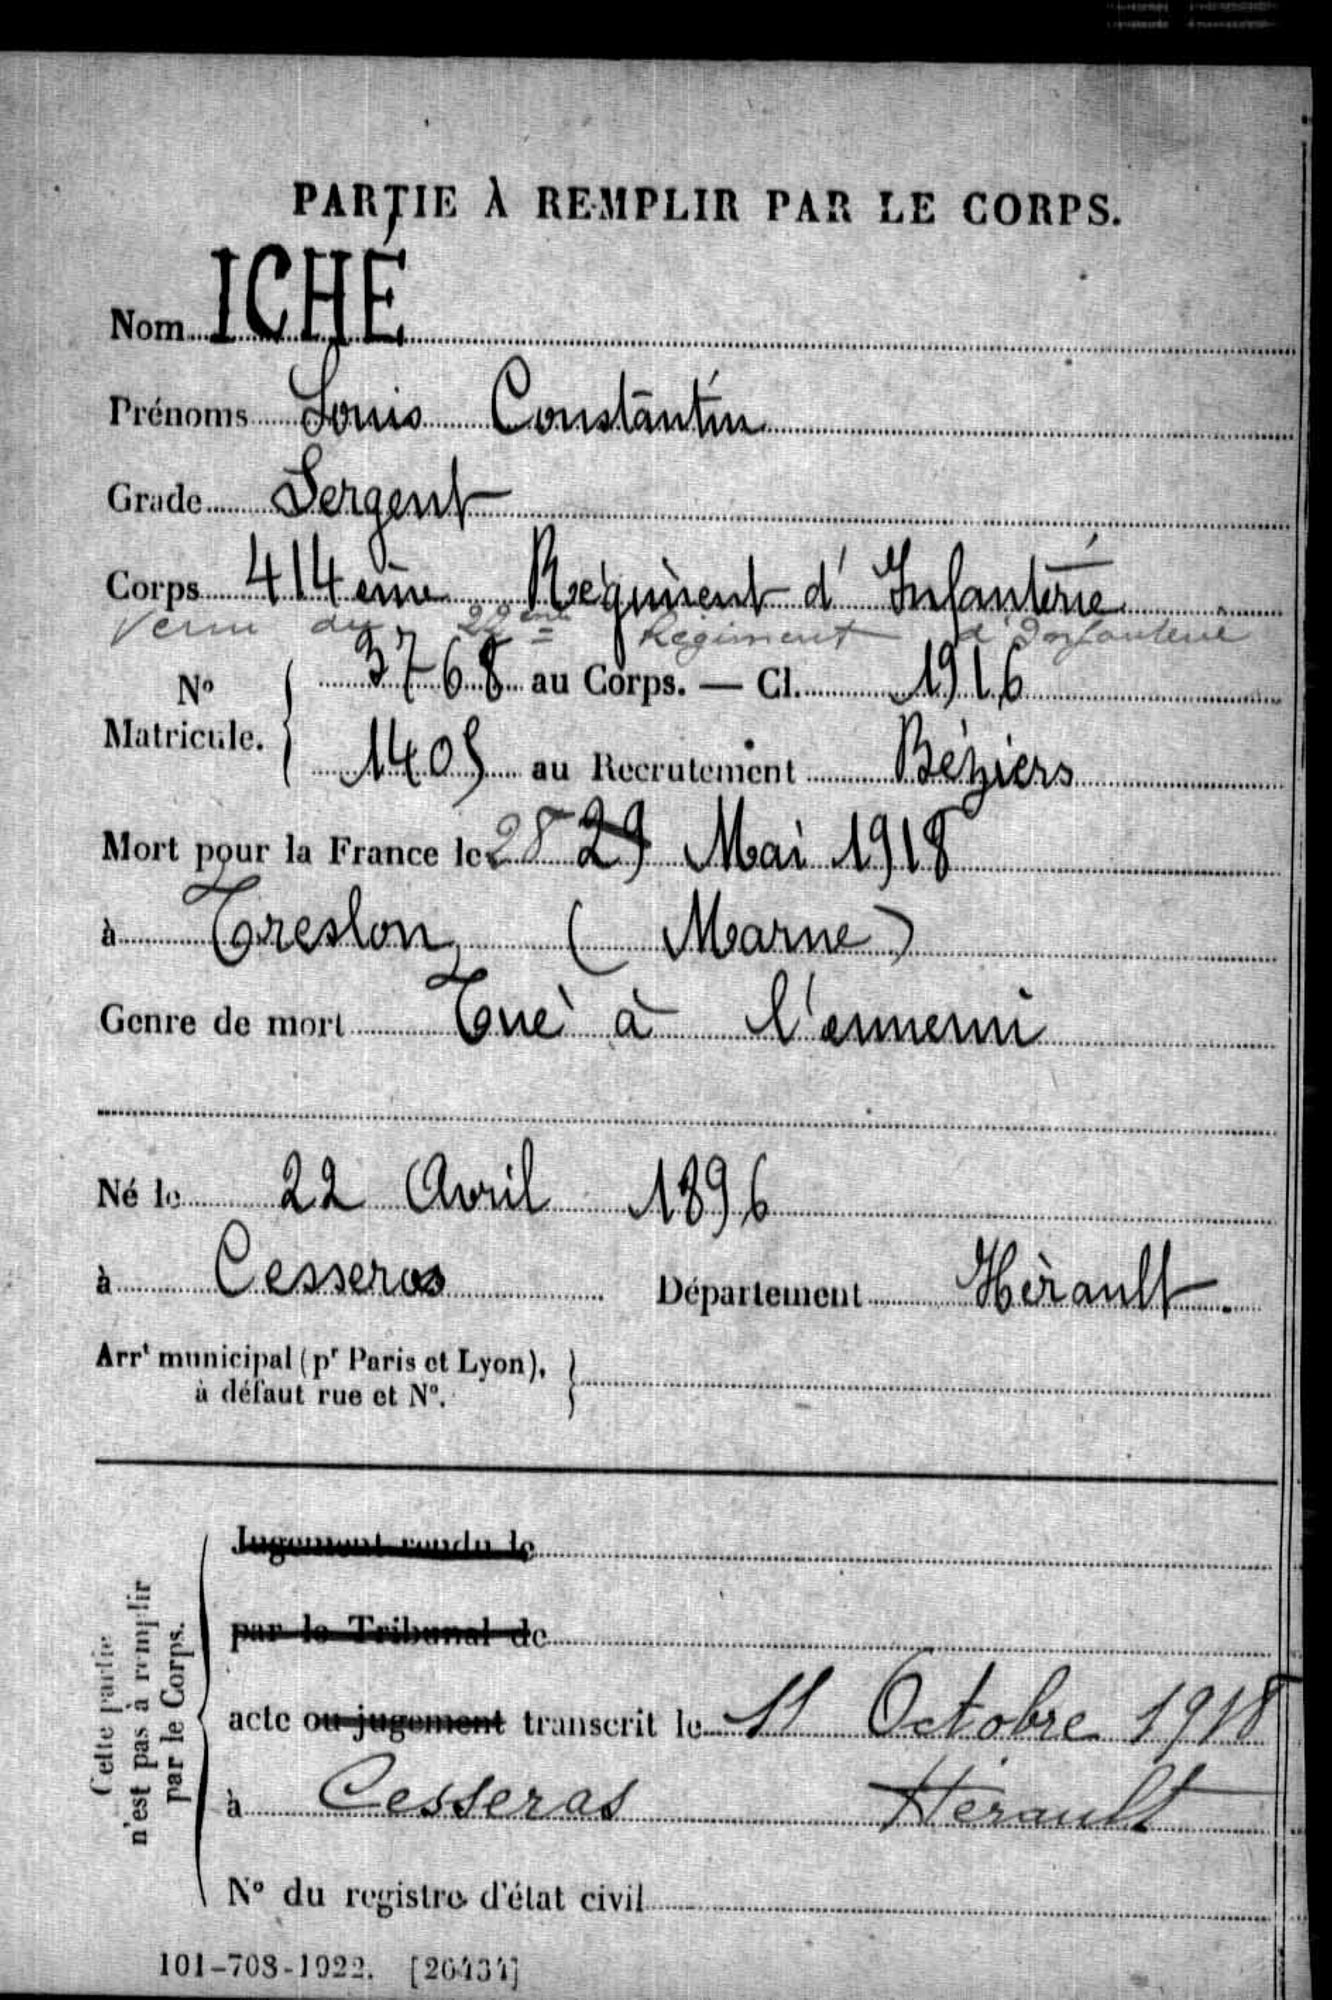 PARTIE À REMPLIR PAR LE CORPS.
Nom ICHÉ
Prénoms Louis Constantin
Grade Sergent
Corps 414ème Régiment d'Infanterie
Venu du 22ème Régiment d'Infanterie
N° Matricule. 3768 au Corps. — Cl. 1916
1405 au Recrutement Béziers
Mort pour la France le 28 29 Mai 1918
à Treslon (Marne)
Genre de mort Tué à l'ennemi
Né le 22 Avril 1896
à Cesseras Département Hérault.
Arrt municipal (pr Paris et Lyon),
à défaut rue et N°.
Cette partie
n'est pas à remplir
par le Corps.
Jugement rendu le
par le Tribunal de
acte ou jugement transcrit le 11 Octobre 1918
à Cesseras Hérault
N° du registre d'état civil
101-708-1922. [26434]